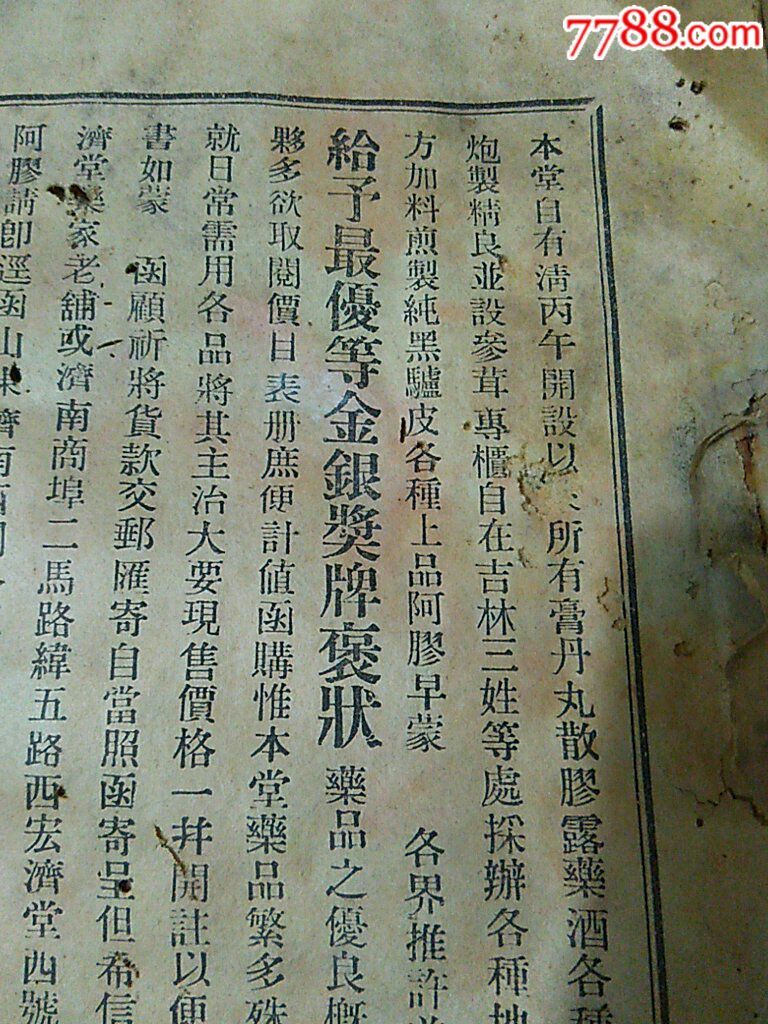 7788.com
本堂自有清丙午開設以 所有膏丹丸散膠露藥酒各種
炮製精良並設參茸專櫃自在吉林三姓等處採辦各種地
方加料煎製純黑驢皮各種上品阿膠早蒙 各界推許並
給予最優等金銀獎牌褒狀 藥品之優良概
夥多欲取閱價目表册庶便計值函購惟本堂藥品繁多殊
就日常需用各品將其主治大要現售價格一幷開註以便
書如蒙 函顧祈將貨款交郵匯寄自當照函寄呈但希信
濟堂樂家老舖或濟南商埠二馬路緯五路西宏濟堂西號
阿膠請卽逕函山東濟南西關